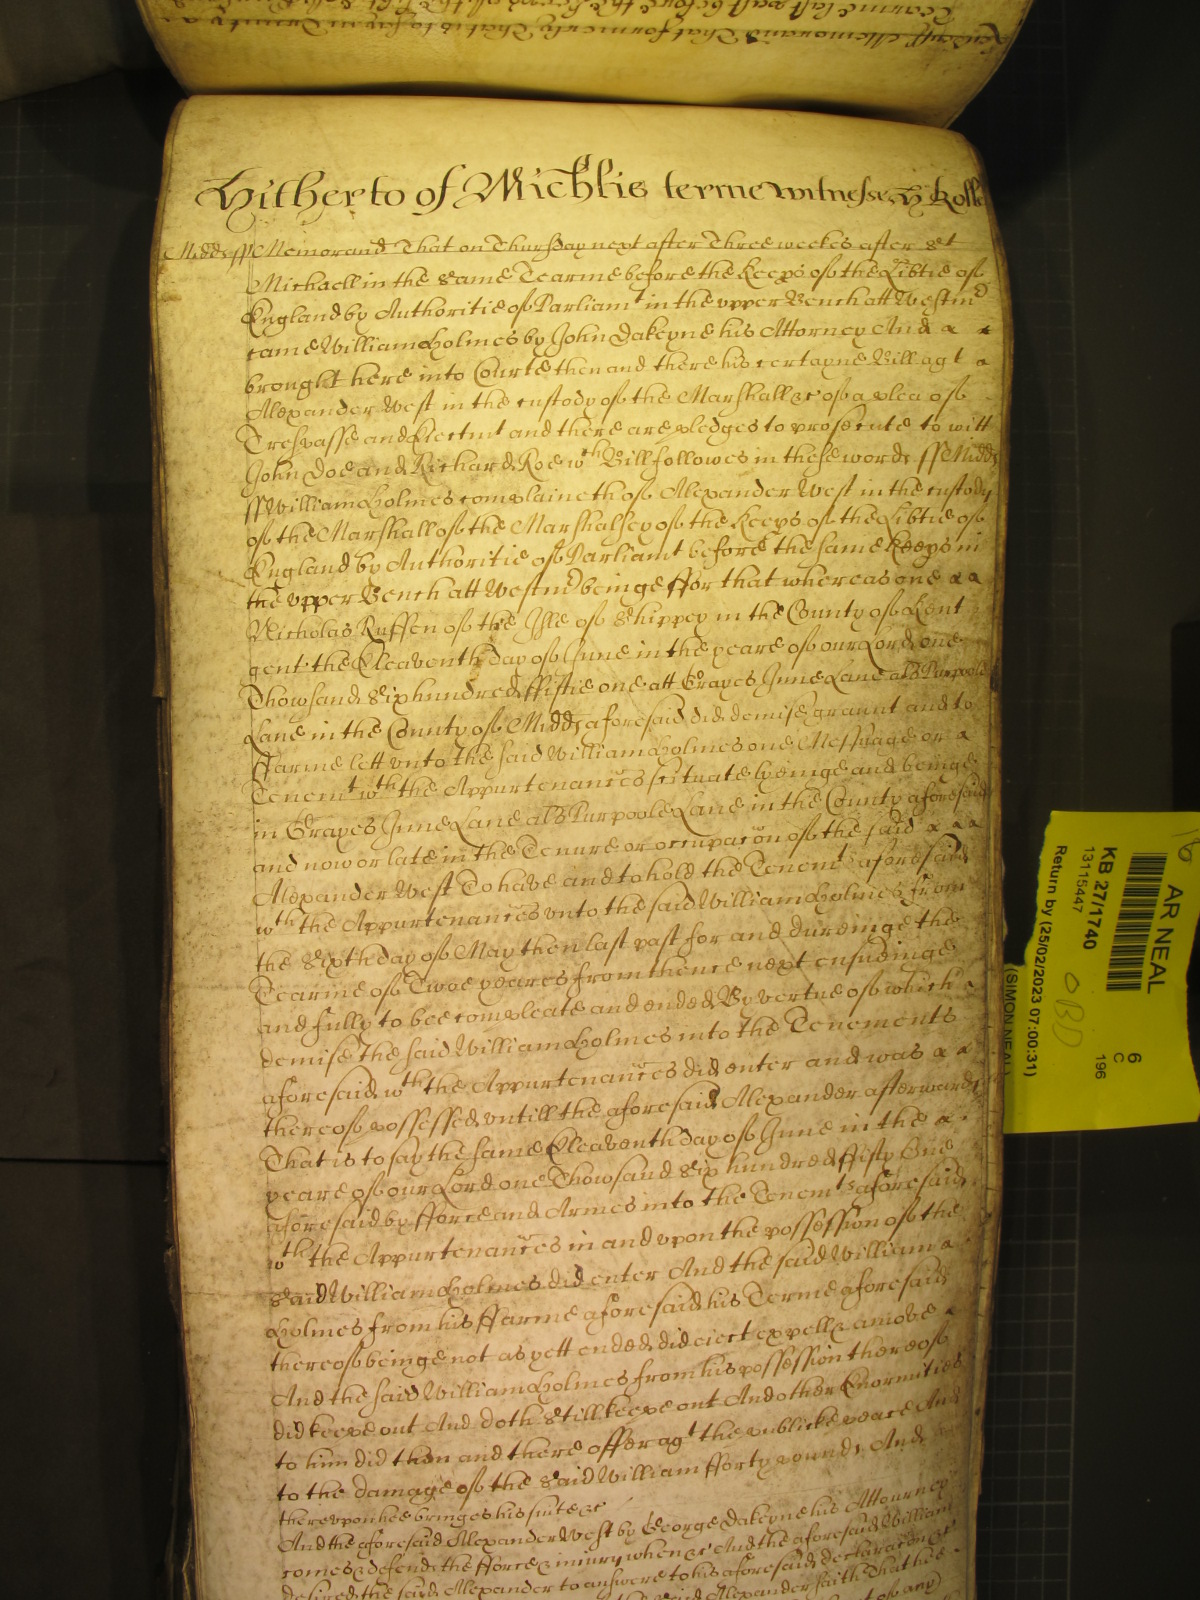 Hitherto of Mich'lis terme witnesse H Rolle
Midd ss Memorand That on Thursday next after Three weekes after St
Michaell in the same Tearme before the Keep's of the Lib'tie of
England by Authoritie of Parliamt in the vpper Bench att Westm'
came William Holmes by John Dakeyne his Attorney And
brought here into Courte then and there his certayne Bill agt
Alexander West in the custody of the Marshall &c of a plea of
Trespasse and Eiectmt and there are pledges to prosecute to witt
John Doe and Richard Roe wch Bill followes in these words ss Midd
ss William Holmes complaineth of Alexander West in the custody
of the Marshall of the Marshalsey of the Keep's of the Lib'tie of
England by Authoritie of Parliamt before the same Keep's in
the vpper Bench att Westm' beinge ffor that whereas one
Nicholas Ruffen of the Isle of Shippey in the County of Kent
gent the Eleaventh day of June in the yeare of our Lord one
Thowsand Six hundred ffiftie one att Grayes Inne Lane als Purpoole
Lane in the County of Midd aforesaid did demise graunt and to
ffarme lett vnto the said William Holmes one Messuage or
Tenemt wth the Appurtenances scituate lyeinge and beinge
in Grayes Inne Lane als Purpoole Lane in the County aforesaid
and now or late in the Tenure or occupac'on of the said
Alexander West To have and to hold the Tenemts aforesaid
wth the Appurtenances vnto the said William Holmes from
the Sixth day of May then last past for and dureinge the
Tearme of Twoe yeares from thence next ensueinge
and fully to bee compleate and ended By vertue of which
demise the said William Holmes into the Tenements
aforesaid wth the Appurtenances did enter and was
thereof possessed vntill the aforesaid Alexander afterwards
That is to say the same Eleaventh day of June in the
yeare of our Lord one Thowsand Six hundred ffifty One
aforesaid by fforce and Armes into the Tenemts aforesaid
wth the Appurtenances in and vpon the possession of the
said William Holmes did enter And the said William
Holmes from his ffarme aforesaid his Terme aforesaid
thereof beinge not as yett ended did eiect expell & amove
And the said William Holmes from his possession thereof
did keepe out And doth still keepe out And other Enormities
to him did then and there offer agt the publicke peace And
to the damage of the said William fforty pounds And
therevpon hee bringes his suite &c
And the aforesaid Alexander West by George Dakeyne his Attourney
comes & defends the fforce & iniury when &c And the aforesaid William
desired the said Alexander to answere to his aforesaid declarac'on &c
said Alexander saith That hee
of any
AR NEAL
KB 27/1740
13115447
6
C
196
Return by (25/02/2023 07:00:31)
(SIMON NEAL)